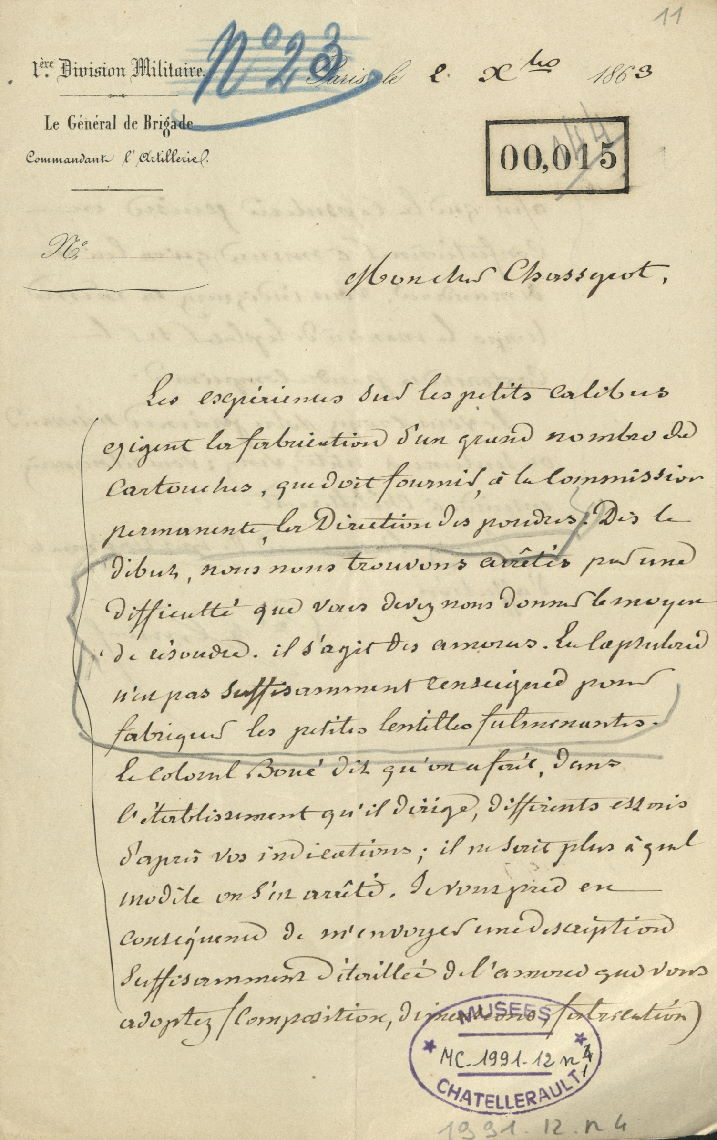 11
1ère Division Militaire.
N° 23
Paris, le 2 Xbre 1863
Le Général de Brigade
Commandant l'Artillerie.
00,015
144
N°
Mon cher Chassepot,
Les expériences sur les petits calibres
exigent la fabrication d'un grand nombre de
Cartouches, que doit fournir, à la Commission
permanente, la Direction des poudres. Dès le
début, nous nous trouvons arrêtés par une
difficulté que vous devez nous donner le moyen
de résoudre. il s'agit des amorces. La Capsulerie
n'est pas suffisamment renseignée pour
fabriquer les petites lentilles fulminantes.
Le Colonel Boué dit qu'on a fait, dans
l'établissement qu'il dirige, différents essais
d'après vos indications; il ne sait plus à quel
modèle on s'est arrêté. Je vous prie en
conséquence de m'envoyer une description
suffisamment détaillée de l'amorce que vous
adoptez (Composition, dimensions, fabrication)
MUSEES
MC-1991-12 n°4/1
CHATELLERAULT
1991.12.n 4